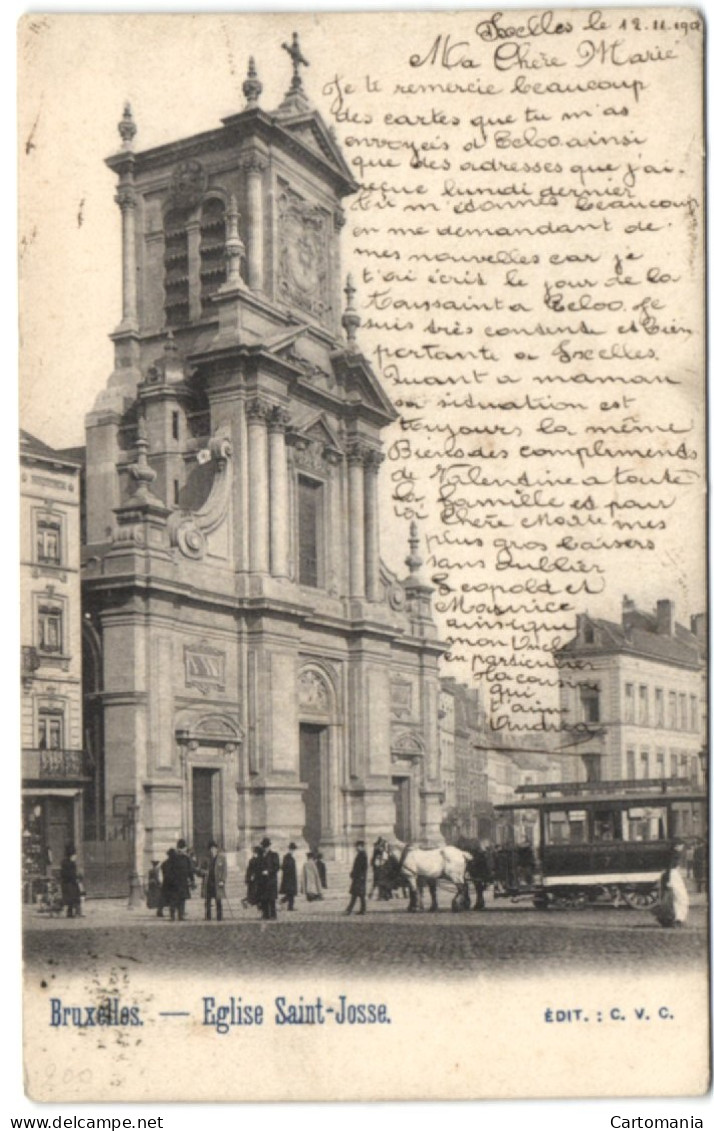 Ixelles le 12.11.190
Ma Chère Marie
Je te remercie beaucoup
des cartes que tu m'as
envoyeis d ainsi
que des adresses que j'ai
reçue lundi dernier
tu m'etonnes beaucoup
en me demandant de
mes nouvelles car je
t'ai écris le jour de la
Toussaint a Je
suis très contente et bien
portante a Ixelles.
Quant a maman
sa situation est
toujours la même
Biens des compliments
de Valentine a toute
la famille et pour
toi Chère mes
plus gros baisers
sans oublier
Leopold et
Maurice
ainsi que
mon Uncle
en particulier
Ta cousine
qui
t'aime
Andrea
Bruxelles. — Eglise Saint-Josse.
ÉDIT. : C. V. C.
200
www.delcampe.net
Cartomania